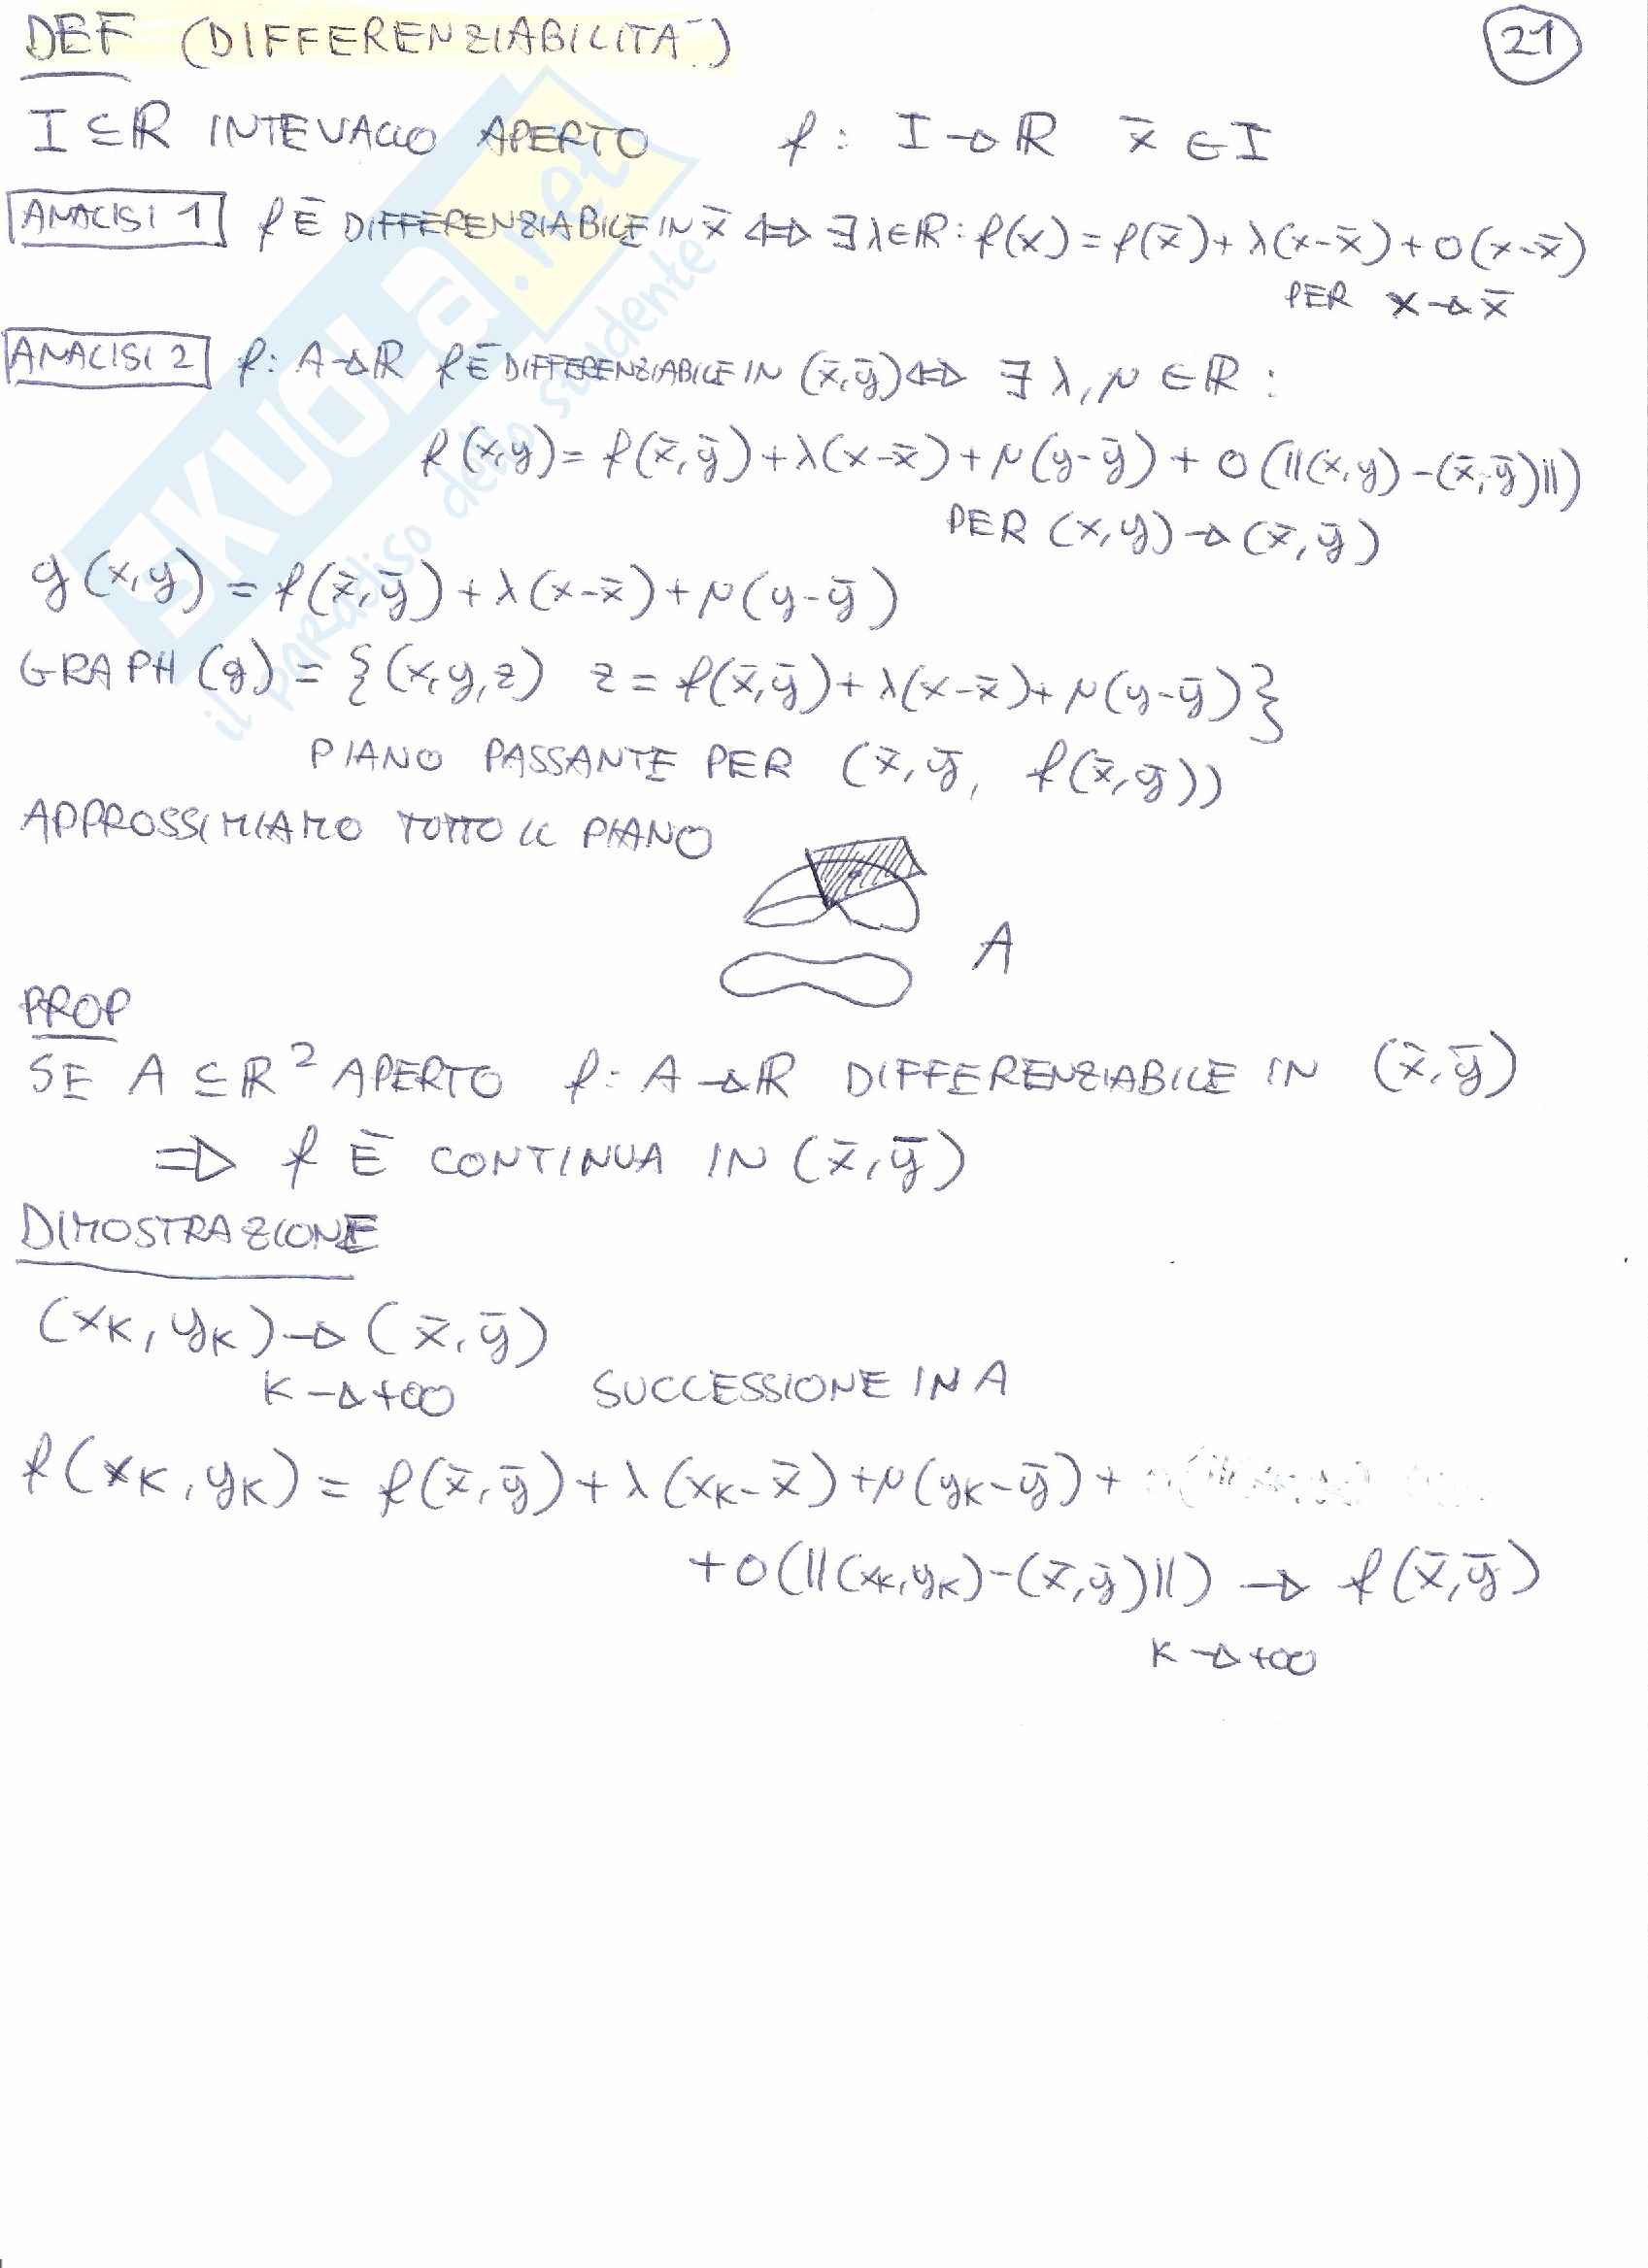 DEF (DIFFERENZIABILITÀ) 21
I ⊆ ℝ INTEVALLO APERTO f: I → ℝ x̄ ∈ I
ANALISI 1 f È DIFFERENZIABILE IN x̄ ⇔ ∃ λ ∈ ℝ: f(x) = f(x̄) + λ(x-x̄) + o(x-x̄)
PER x → x̄
ANALISI 2 f: A → ℝ f È DIFFERENZIABILE IN (x̄,ȳ) ⇔ ∃ λ, μ ∈ ℝ:
f(x,y) = f(x̄,ȳ) + λ(x-x̄) + μ(y-ȳ) + o(||(x,y)-(x̄,ȳ)||)
PER (x,y) → (x̄,ȳ)
g(x,y) = f(x̄,ȳ) + λ(x-x̄) + μ(y-ȳ)
GRAPH(g) = {(x,y,z) z = f(x̄,ȳ) + λ(x-x̄) + μ(y-ȳ)}
PIANO PASSANTE PER (x̄,ȳ, f(x̄,ȳ))
APPROSSIMIAMO TUTTO IL PIANO
A
PROP
SE A ⊆ ℝ² APERTO f: A → ℝ DIFFERENZIABILE IN (x̄,ȳ)
⇒ f È CONTINUA IN (x̄,ȳ)
DIMOSTRAZIONE
(xK, yK) → (x̄,ȳ)
K → +∞ SUCCESSIONE IN A
f(xK, yK) = f(x̄,ȳ) + λ(xK-x̄) + μ(yK-ȳ) +
+ o(||(xK,yK)-(x̄,ȳ)||) → f(x̄,ȳ)
K → +∞
SKUOLA.net
il paradiso dello studente